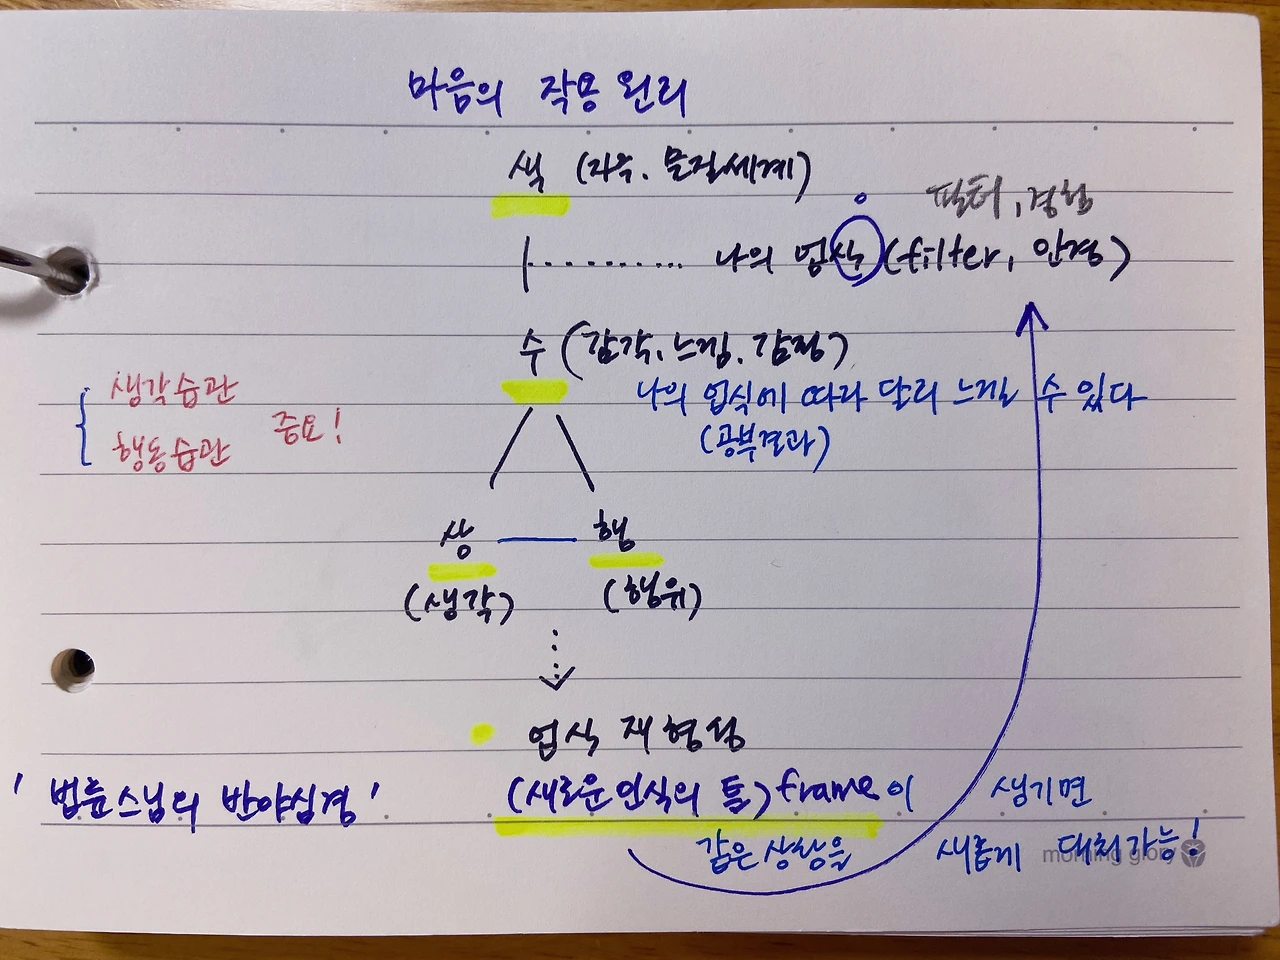 마음의 작용 원리
색 (자연. 물질세계)
필터, 경험
나의 업식 (filter, 안경)
수 (감각. 느낌. 감정)
나의 업식에 따라 달리 느낄 수 있다
(공부결과)
생각습관
행동습관
중요!
상 행
(생각) (행위)
업식 재형성
'법륜스님의 반야심경'
(새로운 인식의 틀) frame이 생기면
같은 상황을 새롭게 대처가능!
morning glory